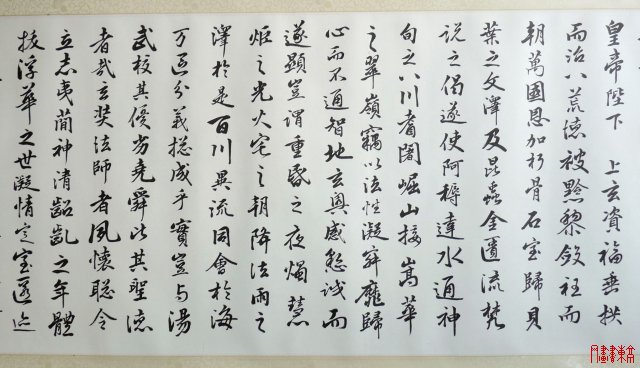 皇帝陛下 上玄資福垂拱
而治八荒德被黔黎斂衽而
朝萬國恩加朽骨石室歸貝
葉之文澤及昆蟲金匱流梵
説之偈遂使阿耨達水通神
甸之八川耆闍崛山接嵩華
之翠嶺竊以法性凝寂靡歸
心而不通智地玄奧感懇誠而
遂顯豈謂重昏之夜燭慧
炬之光火宅之朝降法雨之
澤於是百川異流同會於海
万區分義總成乎實豈与湯
武校其優劣堯舜比其聖德
者哉玄奘法師者夙懷聰令
立志夷簡神清齠齔之年體
拔浮華之世凝情定室匿迹